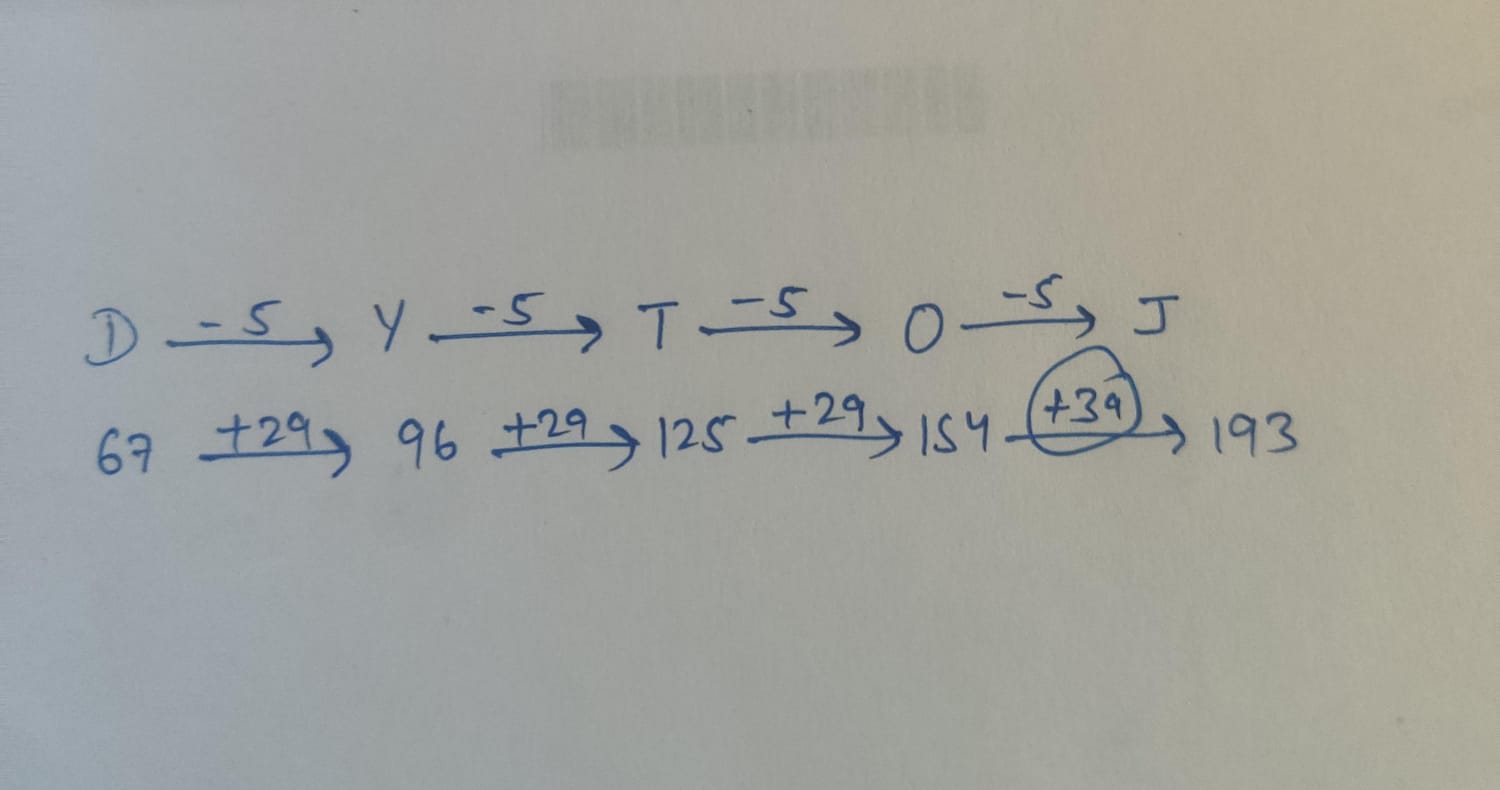 D -5→ Y -5→ T -5→ O -5→ J
67 +29→ 96 +29→ 125 +29→ 154 +39→ 193